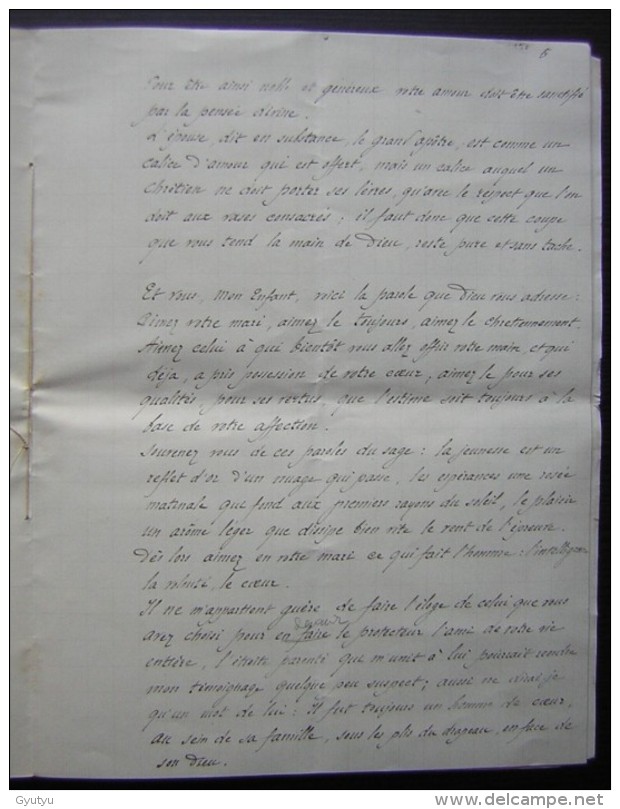 6
Pour être ainsi noble et généreux votre amour doit être sanctifié
par la pensée divine.
L'épouse, dit en substance, le grand apôtre, est comme un
calice d'amour qui est offert, mais un calice auquel un
chrétien ne doit porter ses lèvres, qu'avec le respect que l'on
doit aux vases consacrés ; il faut donc que cette coupe
que vous tend la main de Dieu, reste pure et sans tache.
Et vous, mon Enfant, voici la parole que Dieu vous adresse :
Aimez votre mari, aimez le toujours, aimez le chrétiennement.
Aimez celui à qui bientôt vous allez offrir votre main, et qui
déjà, a pris possession de votre cœur ; aimez le pour ses
qualités, pour ses vertus, que l'estime soit toujours à la
base de votre affection.
Souvenez vous de ces paroles du sage : la jeunesse est un
reflet d'or d'un nuage qui passe, les espérances une rosée
matinale que fond aux premiers rayons du soleil, le plaisir
un arôme léger que dissipe bien vite le vent de l'épreuve.
Dès lors aimez en votre mari ce qui fait l'homme : l'intelligence
la volonté, le cœur.
Il ne m'appartient guère de faire l'éloge de celui que vous
avez choisi pour en faire le protecteur l'ami de votre vie
entière, l'étroite parenté que m'unit à lui pourrait rendre
mon témoignage quelque peu suspect ; aussi ne dirai je
qu'un mot de lui : Il fut toujours un homme de cœur,
au sein de sa famille, sous les plis du drapeau, en face de
son Dieu.
Gyutyu
delcampe.net